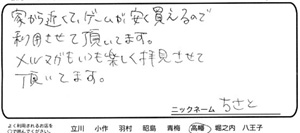 家から近くて、ゲームが安く買えるので
利用させて頂いてます。
メルマガもいつも楽しく拝見させて
頂いてます。
ニックネーム ちさと
よく利用されるお店を
○で囲んでください。 立川 小作 羽村 昭島 青梅 高幡 堀之内 八王子